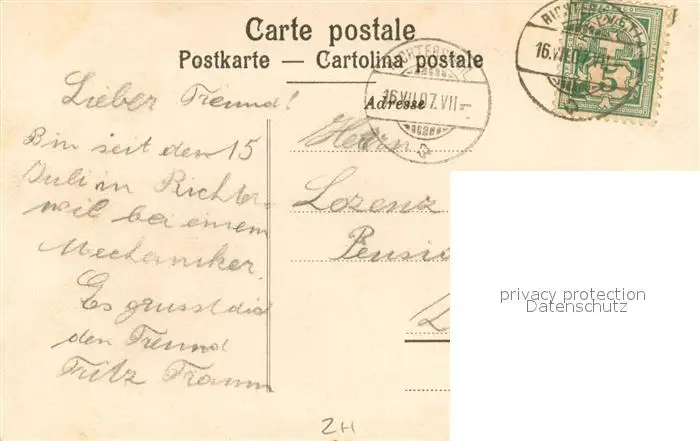 Carte postale
Postkarte — Cartolina postale
Adresse
16.VII.07.VII
16.VII.07
HELVETIA
5
Lieber Freund!
Bin seit den 15
Juli in Richter-
wil bei einem
Mechaniker.
Es grusst dich
den Freund
Fritz
Herrn
Lozenz
privacy protection
Datenschutz
ZH